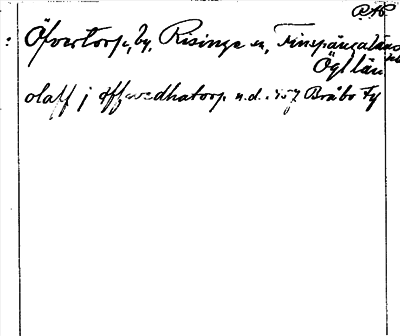 P.A?
Öfvertorp, by, Risinge sn, Finspångaläns
Ögl län
olaff j offwedhatorp n.d. 157 Bråbo Fg